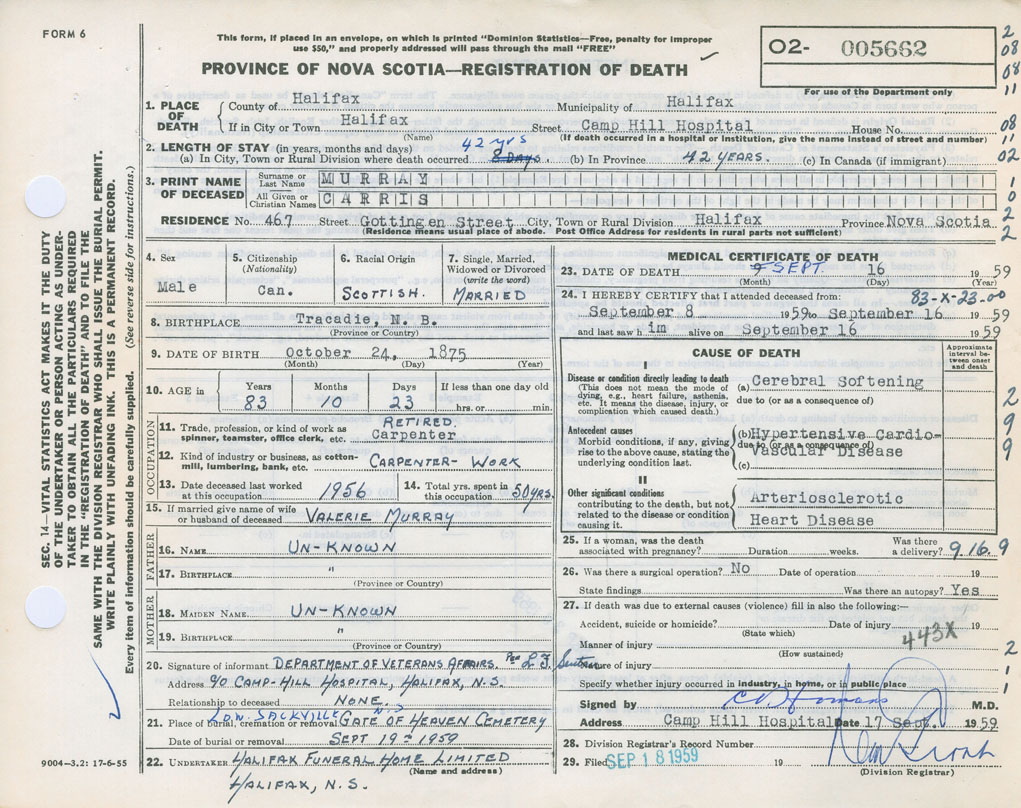 FORM 6
This form, if placed in an envelope, on which is printed "Dominion Statistics—Free, penalty for improper
use $50," and properly addressed will pass through the mail "FREE"
PROVINCE OF NOVA SCOTIA—REGISTRATION OF DEATH
O2- 005662
For use of the Department only
2
08
08
11
08
11
02
1
0
2
2
SEC. 14—VITAL STATISTICS ACT MAKES IT THE DUTY
OF THE UNDERTAKER OR PERSON ACTING AS UNDER-
TAKER TO OBTAIN ALL THE PARTICULARS REQUIRED
IN THE "REGISTRATION OF DEATH" AND TO FILE THE
SAME WITH THE DIVISION REGISTRAR WHO SHALL ISSUE THE BURIAL PERMIT.
WRITE PLAINLY WITH UNFADING INK. THIS IS A PERMANENT RECORD.
Every item of information should be carefully supplied. (See reverse side for instructions.)
1. PLACE OF DEATH
County of Halifax Municipality of Halifax
If in City or Town Halifax Street Camp Hill Hospital House No.
(Name) (If death occurred in a hospital or institution, give the name instead of street and number)
2. LENGTH OF STAY (in years, months and days) 42 yrs
(a) In City, Town or Rural Division where death occurred 8 DAYS. (b) In Province 42 YEARS. (c) In Canada (if immigrant)
3. PRINT NAME OF DECEASED
Surname or Last Name MURRAY
All Given or Christian Names CARRIS
RESIDENCE No. 467 Street Gottingen Street City, Town or Rural Division Halifax Province Nova Scotia
(Residence means usual place of abode. Post Office Address for residents in rural parts not sufficient)
4. Sex
Male
5. Citizenship
(Nationality)
Can.
6. Racial Origin
SCOTTISH.
7. Single, Married,
Widowed or Divorced
(write the word)
MARRIED
8. BIRTHPLACE Tracadie, N. B.
(Province or Country)
9. DATE OF BIRTH October 24, 1875
(Month) (Day) (Year)
10. AGE in
Years Months Days If less than one day old
83 10 23 hrs. or min.
OCCUPATION
11. Trade, profession, or kind of work as
spinner, teamster, office clerk, etc. RETIRED. Carpenter
12. Kind of industry or business, as cotton-
mill, lumbering, bank, etc. CARPENTER-WORK
13. Date deceased last worked
at this occupation 1956
14. Total yrs. spent in
this occupation 50 YRS.
15. If married give name of wife
or husband of deceased VALERIE MURRAY
FATHER
16. NAME UN-KNOWN
17. BIRTHPLACE "
(Province or Country)
MOTHER
18. MAIDEN NAME UN-KNOWN
19. BIRTHPLACE "
(Province or Country)
20. Signature of informant DEPARTMENT OF VETERANS AFFAIRS. Per
Address c/o CAMP-HILL HOSPITAL, HALIFAX, N.S.
Relationship to deceased NONE.
21. Place of burial, cremation or removal LOW. SACKVILLE N.S GATE OF HEAVEN CEMETERY
Date of burial or removal SEPT 19th 1959
22. UNDERTAKER HALIFAX FUNERAL HOME LIMITED
(Name and address)
HALIFAX, N.S.
9004—3.2: 17-6-55
MEDICAL CERTIFICATE OF DEATH
23. DATE OF DEATH 9 SEPT. 16 19 59
(Month) (Day) (Year)
24. I HEREBY CERTIFY that I attended deceased from: 83-X-23-00
September 8 1959 to September 16 1959
and last saw him alive on September 16 1959
CAUSE OF DEATH
Approximate
interval be-
tween onset
and death
I
Disease or condition directly leading to death
(This does not mean the mode of
dying, e.g., heart failure, asthenia,
etc. It means the disease, injury, or
complication which caused death.)
(a) Cerebral Softening
due to (or as a consequence of)
Antecedent causes
Morbid conditions, if any, giving
rise to the above cause, stating the
underlying condition last.
(b) Hypertensive Cardio-
due to (or as a consequence of)
Vascular Disease
(c)
II
Other significant conditions
contributing to the death, but not
related to the disease or condition
causing it.
Arteriosclerotic
Heart Disease
2
9
9
25. If a woman, was the death
associated with pregnancy? Duration weeks. Was there
a delivery? 9.16.9
26. Was there a surgical operation? No Date of operation 19
State findings Was there an autopsy? Yes
27. If death was due to external causes (violence) fill in also the following:—
Accident, suicide or homicide? Date of injury 19
(State which)
443X
Manner of injury
(How sustained)
2
Nature of injury
Specify whether injury occurred in industry, in home, or in public place
1
Signed by M.D.
Address Camp Hill Hospital Date 17 Sept. 1959
28. Division Registrar's Record Number
29. Filed SEP 18 1959 19
(Division Registrar)